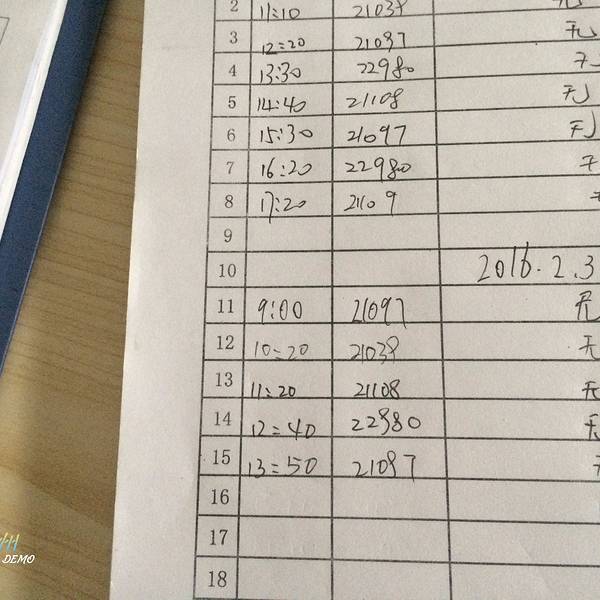 2 11:10 21038
3 12=20 21097 无
4 13:30 22980
5 14:40 21108 无
6 15:30 21097 无
7 16:20 22980
8 17:20 21109
9
10 2016.2.3
11 9:00 21097 无
12 10=20 21038 无
13 11:20 21108 无
14 12=40 22980 无
15 13=50 21097
16
17
18
DEMO